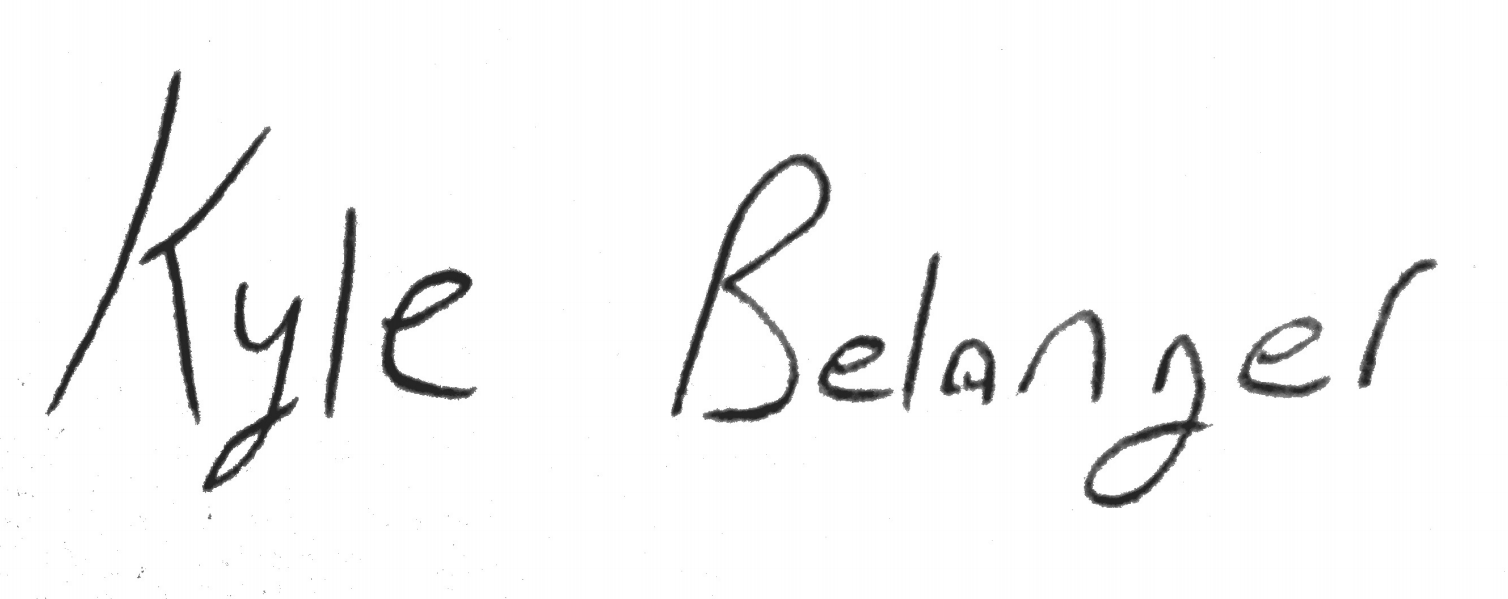 Kyle Belanger